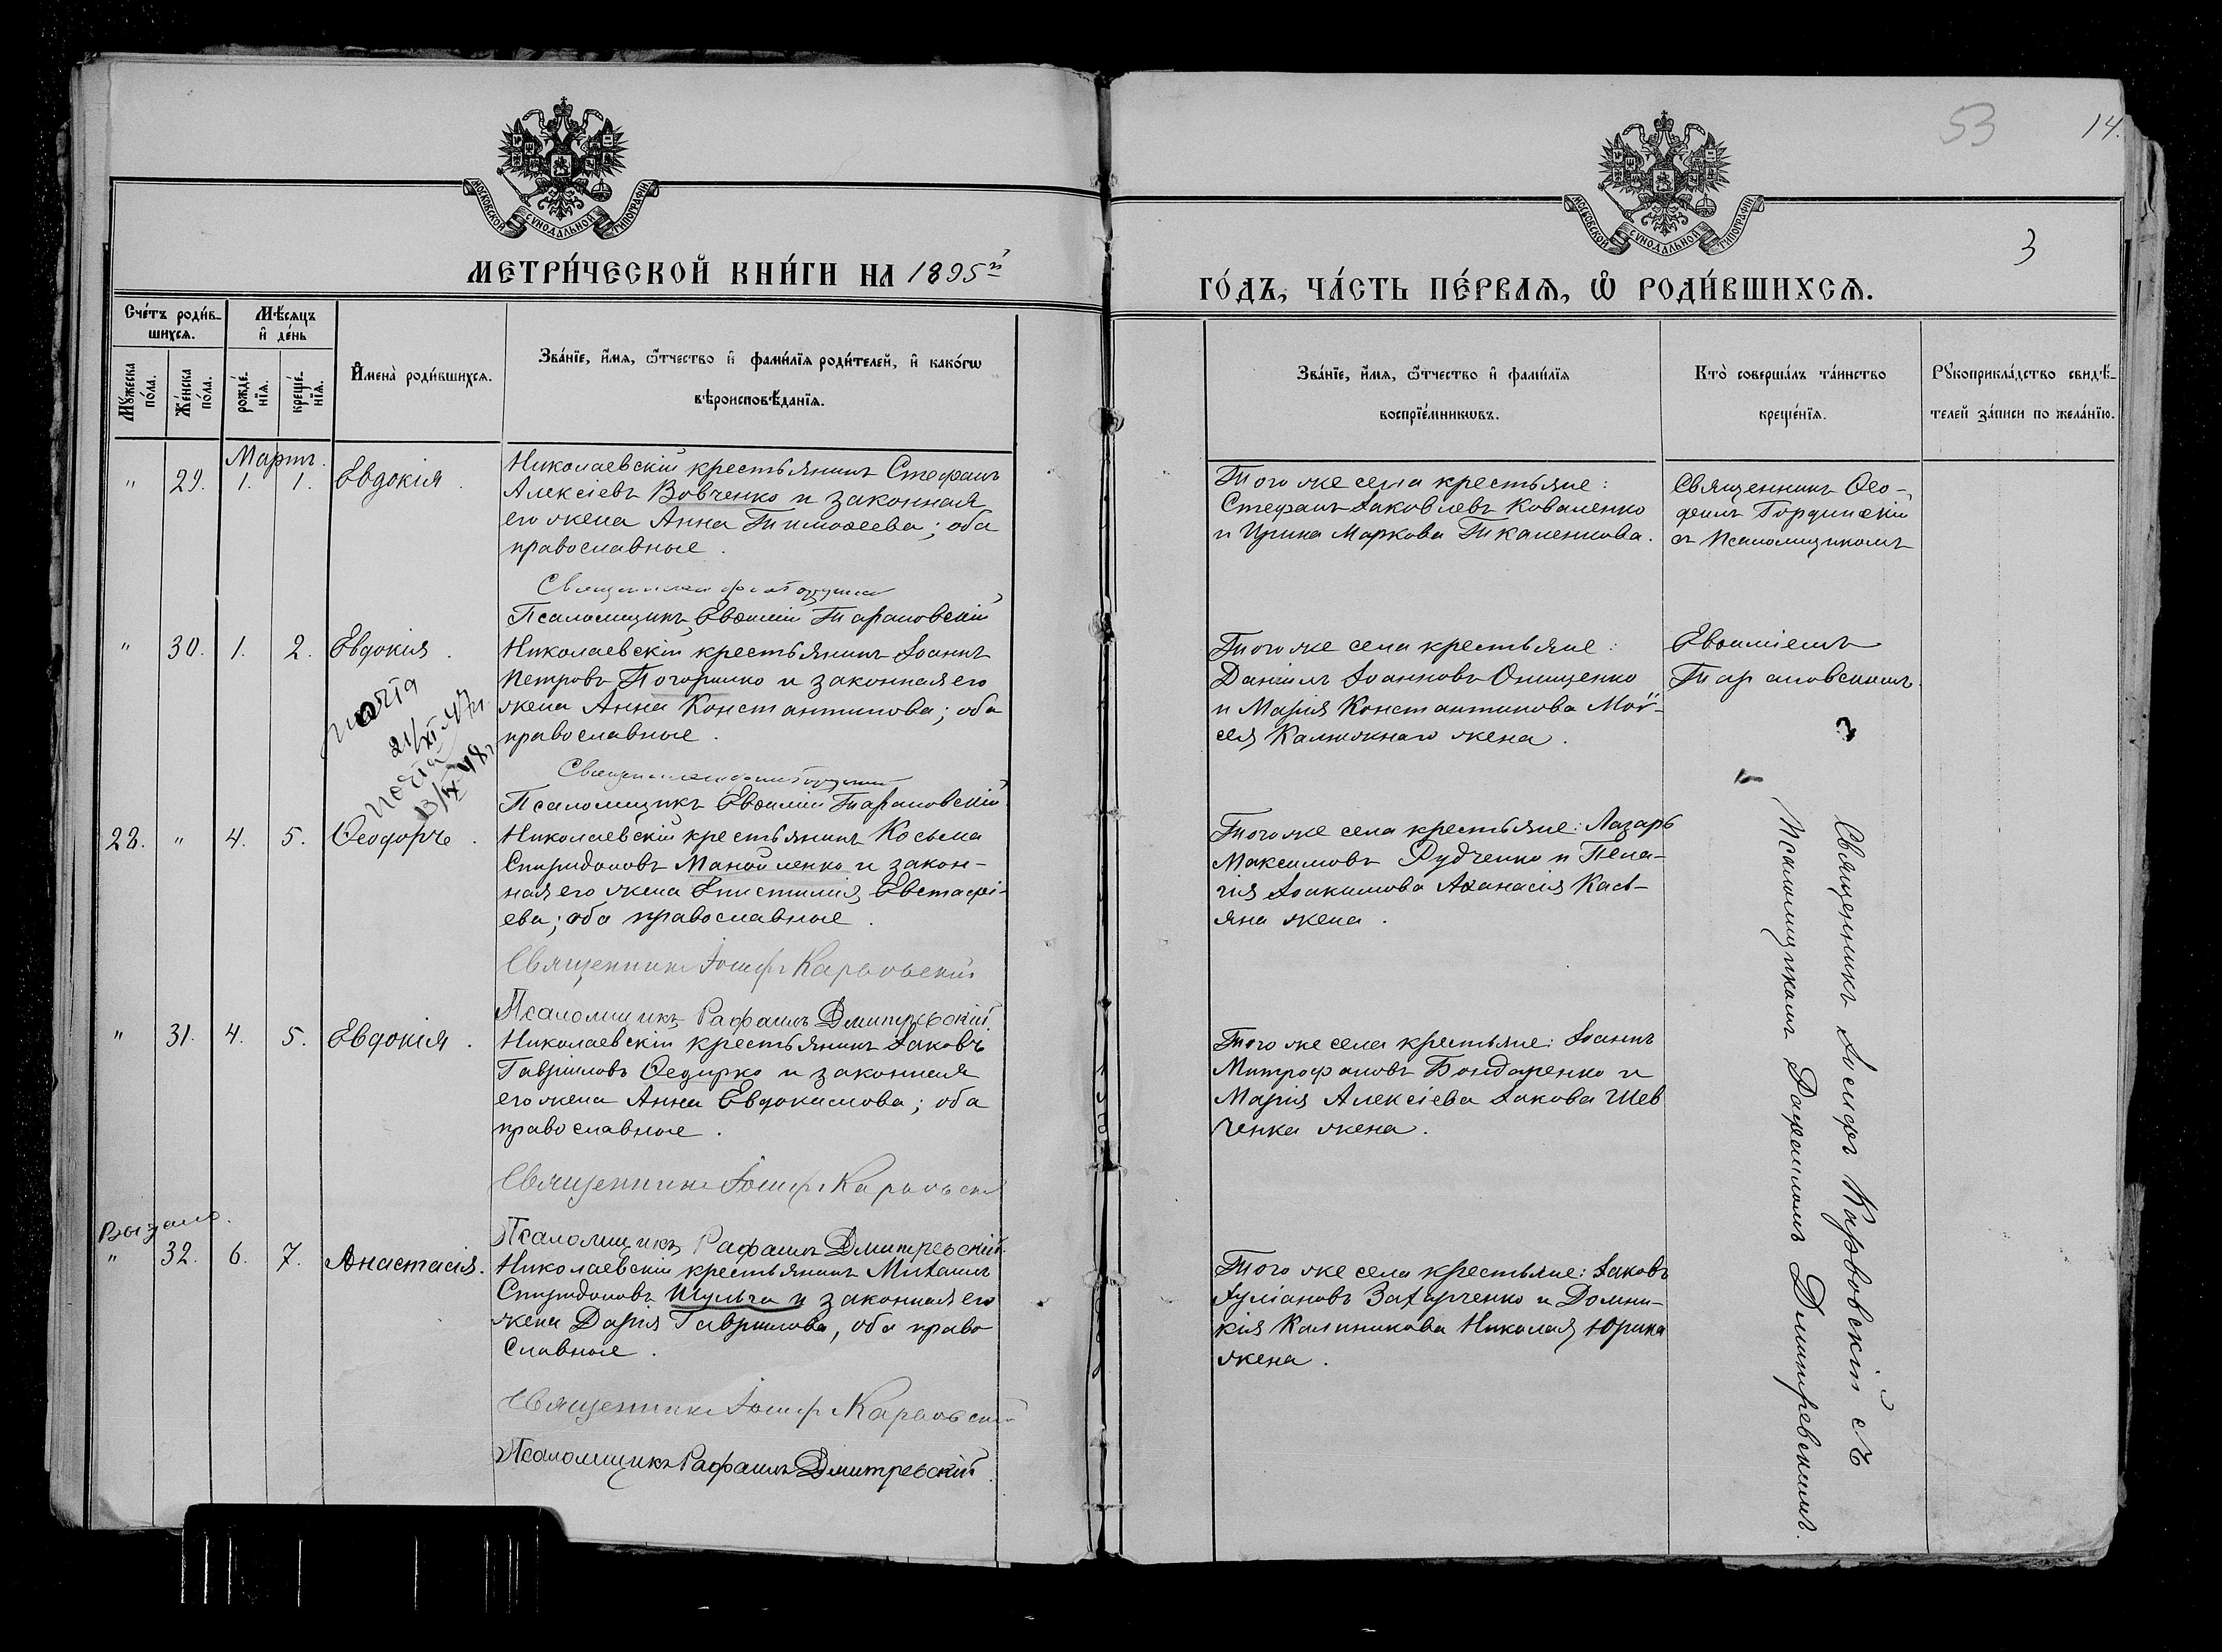 МОСКОВСКОЙ СѴНОДАЛЬНОЙ ТИПОГРАФІИ
МЕТРИ́ЧЕСКОЙ КНИ́ГИ НА 1895й
Сче́тъ роди́в-
шихся.
Мѣ́сяцъ
и҆ де́нь
Мꙋ́жеска
по́ла.
Же́нска
по́ла.
рожде́-
нїя.
креще́-
нїя.
И҆мена̀ роди́вшихся.
Зва́нїе, и҆́мя, ѻ҆́тчество и҆ фами́лїя роди́телей, и҆ како́гѡ
вѣроисповѣ́данїя.
Мартъ.
" 29. 1. 1. Евдокія.
Николаевскій крестьянинъ Стефанъ
Алексіевъ Вовченко и законная
его жена Анна Тимоѳеева; оба
православные.
Священникъ
Псаломщикъ Евѳимій Тарановскій
" 30. 1. 2. Евдокія.
Николаевскій крестьянинъ Іоаннъ
Петровъ Погорилко и законная его
жена Анна Константинова; оба
православные.
21/XI 47
13/IX 48
Священникъ
Псаломщикъ Евѳимій Тарановскій
28. " 4. 5. Ѳеодоръ.
Николаевскій крестьянинъ Косьма
Спиридоновъ Манойленко и закон-
ная его жена Епистимія Евстафі-
ева; оба православные.
Священникъ Іосифъ Карвовскій
Псаломщикъ Рафаилъ Дмитревскій
" 31. 4. 5. Евдокія.
Николаевскій крестьянинъ Іаковъ
Гавріиловъ Ѳедирко и законная
его жена Анна Евдокимова; оба
православные.
Священникъ Іосифъ Карвовскій
Псаломщикъ Рафаилъ Дмитревскій
Выдано.
" 32. 6. 7. Анастасія.
Николаевскій крестьянинъ Михаилъ
Спиридоновъ Шульга и законная его
жена Дарія Гавриилова, оба право
славные.
Священникъ Іосифъ Карвовскій
Псаломщикъ Рафаилъ Дмитревскій
53 14.
МОСКОВСКОЙ СѴНОДАЛЬНОЙ ТИПОГРАФІИ
3
ГО́ДЪ, ЧА́СТЬ ПЕ́РВАЯ, Ѡ҆ РОДИ́ВШИХСЯ.
Зва́нїе, и҆́мя, ѻ҆́тчество и҆ фами́лїя
воспрїе́мникѡвъ.
Кто̀ соверша́лъ та́инство
креще́нїя.
Рꙋкоприкла́дство свидѣ́-
телей за́писи по жела́нїю.
Того же села крестьяне:
Стефанъ Іаковлевъ Коваленко
и Ирина Маркова Ткаленкова.
Священникъ Ѳео-
филъ Гордински
съ Псаломщикомъ
Того же села крестьяне:
Даніилъ Іоанновъ Онищенко
и Марія Константинова Мой-
сея Калюжнаго жена.
Евѳиміемъ
Тарановскимъ.
Того же села крестьяне: Лазарь
Максимовъ Рудченко и Пела-
гія Іоакимова Аѳанасія Кась-
яна жена.
Того же села крестьяне: Іоаннъ
Митрофановъ Бондаренко и
Марія Алексіева Іакова Шев
ченка жена.
Того же села крестьяне: Іаковъ
Іуліановъ Захарченко и Домни-
кія Калиникова Николая Юрина
жена.
Священникъ Іосифъ Карвовскій съ
Псаломщикомъ Рафаиломъ Дмитревскимъ.